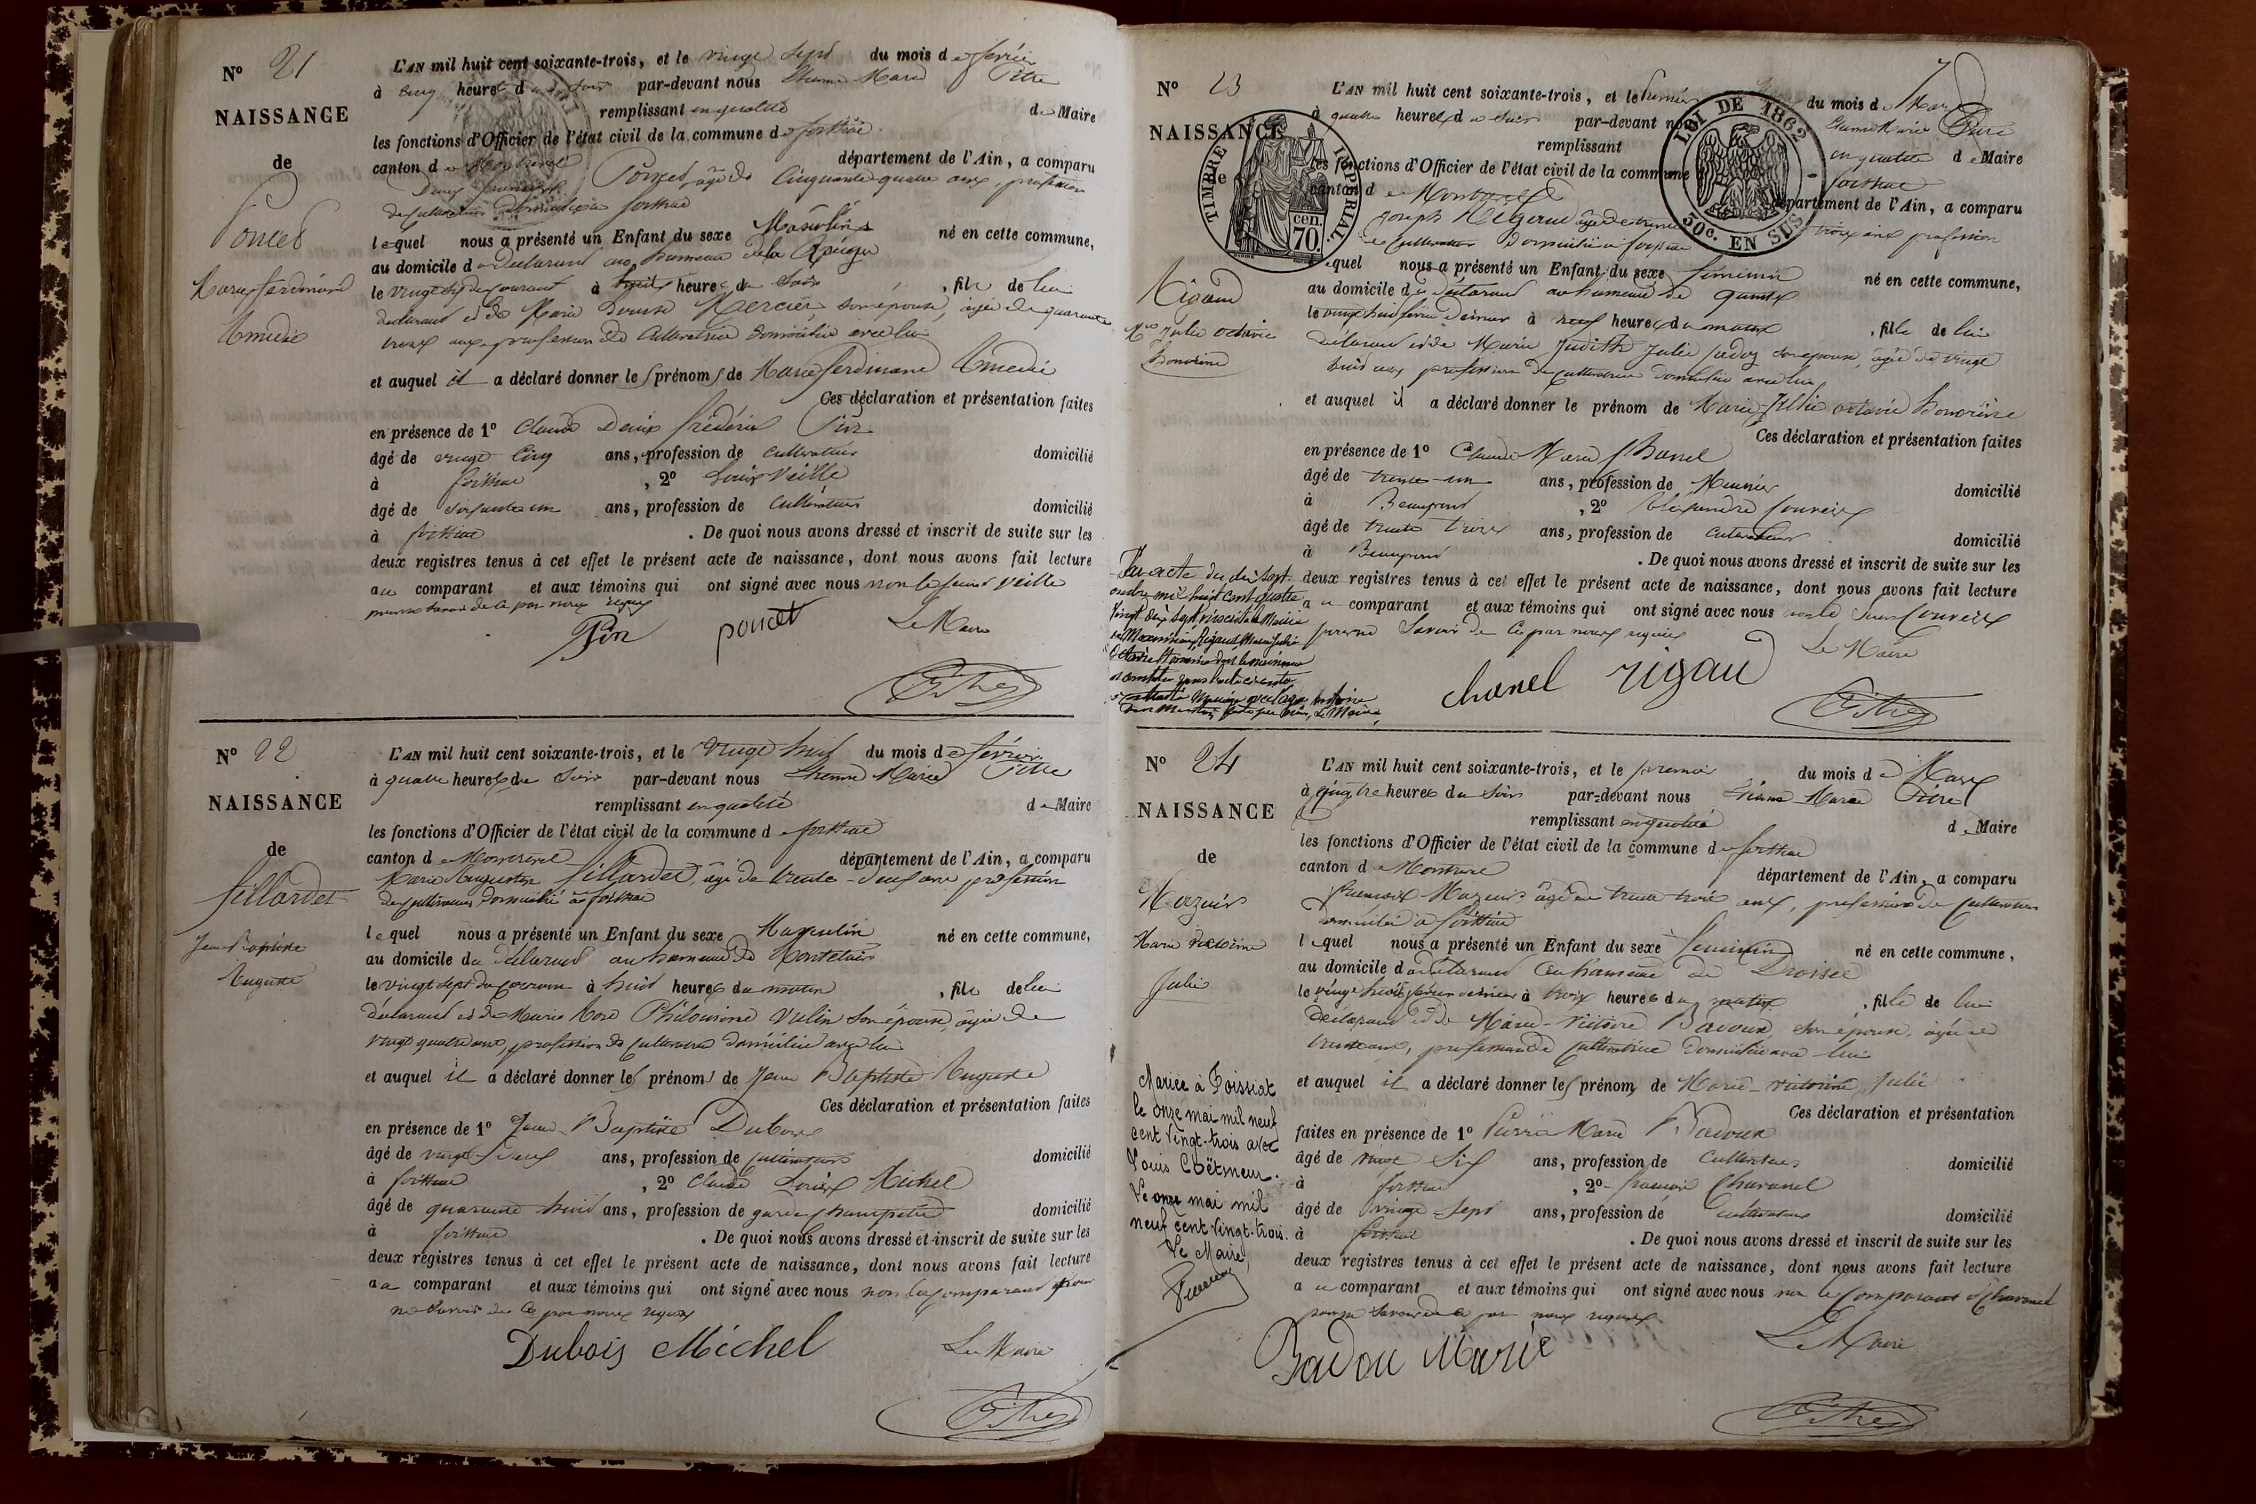 N° 21
NAISSANCE
de
Poncet
Marie ferdinand
Amedée
L'AN mil huit cent soixante-trois, et le vingt sept du mois de février
à cinq heures du soir par-devant nous Etienne Marie Pitre
remplissant en qualité de Maire
les fonctions d'Officier de l'état civil de la commune de foissiat
canton de Montrevel département de l'Ain, a comparu
Poncet, âgé de Cinquante quatre ans, profession
de Cultivateur domicilié à foissiat
lequel nous a présenté un Enfant du sexe Masculin né en cette commune,
au domicile du déclarant au hameau de la
le vingt six du courant à huit heures du soir, fils de lui
déclarant et de Marie Denise Mercier, son épouse, âgée de quarante
trois ans profession de Cultivatrice domiciliée avec lui
et auquel il a déclaré donner les prénoms de Marie ferdinand Amedée
Ces déclaration et présentation faites
en présence de 1° Claude Denis frédéric Pin
âgé de vingt Cinq ans, profession de Cultivateur domicilié
à foissiat, 2° Louis Veille
âgé de soixante un ans, profession de Cultivateur domicilié
à foissiat. De quoi nous avons dressé et inscrit de suite sur les
deux registres tenus à cet effet le présent acte de naissance, dont nous avons fait lecture
au comparant et aux témoins qui ont signé avec nous non le Sieur Veille
pour ne savoir de ce par nous requis
Pin poncet Le Maire
Pitre
N° 22
NAISSANCE
de
fillardet
Jean Baptiste
Auguste
L'AN mil huit cent soixante-trois, et le vingt huit du mois de février
à quatre heures du soir par-devant nous Etienne Marie Pitre
remplissant en qualité de Maire
les fonctions d'Officier de l'état civil de la commune de foissiat
canton de Montrevel département de l'Ain, a comparu
Marie Augustin fillardet, âgé de trente-deux ans profession
de cultivateur domicilié à foissiat
lequel nous a présenté un Enfant du sexe Masculin né en cette commune,
au domicile du déclarant au hameau de
le vingt sept du courant à huit heures du matin, fils de lui
déclarant et de Marie Rose Philomène Vulin son épouse, âgée de
vingt quatre ans, profession de Cultivatrice domiciliée avec lui
et auquel il a déclaré donner les prénoms de Jean Baptiste Auguste
Ces déclaration et présentation faites
en présence de 1° Jean-Baptiste Dubois
âgé de vingt-deux ans, profession de cultivateur domicilié
à foissiat, 2° Claude Louis Michel
âgé de quarante huit ans, profession de garde champêtre domicilié
à foissiat. De quoi nous avons dressé et inscrit de suite sur les
deux registres tenus à cet effet le présent acte de naissance, dont nous avons fait lecture
au comparant et aux témoins qui ont signé avec nous non le comparant pour
ne savoir de ce par nous requis
Dubois Michel Le Maire
Pitre
N° 23
NAISSANCE
de
Rigaud
Mie Julie octavie
honorine
TIMBRE IMPERIAL.
cen. 70.
LOI DE 1862
50c. EN SUS
L'AN mil huit cent soixante-trois, et le premier du mois de Mars
à quatre heures du soir par-devant nous Etienne Marie Pitre
remplissant en qualité de Maire
les fonctions d'Officier de l'état civil de la commune foissiat
canton de Montrevel département de l'Ain, a comparu
Joseph Rigaud âgé de trente trois ans profession
de Cultivateur domicilié à foissiat
lequel nous a présenté un Enfant du sexe féminin né en cette commune,
au domicile du déclarant au hameau de
le vingt huit février dernier à neuf heures du matin, fille de lui
déclarant et de Marie Judith Julie son épouse, âgée de vingt
huit ans profession de cultivatrice domiciliée avec lui
et auquel il a déclaré donner le prénom de Marie Julie octavie honorine
Ces déclaration et présentation faites
en présence de 1° Claude Marie Chanel
âgé de trente-un ans, profession de Meunier domicilié
à Beaupont, 2° Alexandre Couveix
âgé de trente trois ans, profession de Cultivateur domicilié
à Beaupont. De quoi nous avons dressé et inscrit de suite sur les
deux registres tenus à cet effet le présent acte de naissance, dont nous avons fait lecture
au comparant et aux témoins qui ont signé avec nous non le Sieur Couveix
pour ne Savoir de ce par nous requis
Le Maire
chanel rigaud
Pitre
Par acte du dix sept
mil huit cent quatre
vingt dix sept
Rigaud Marie Julie
Octavie Honorine dont la naissance
est constatée dans l'acte ci-contre
a contracté Mariage avec
Le Maire
N° 24
NAISSANCE
de
Mazuir
Marie victorine
Julie
L'AN mil huit cent soixante-trois, et le premier du mois de Mars
à quatre heures du soir par-devant nous Etienne Marie Pitre
remplissant en qualité de Maire
les fonctions d'Officier de l'état civil de la commune de foissiat
canton de Montrevel département de l'Ain, a comparu
François Mazuir âgé de trente trois ans, profession de Cultivateur
domicilié à foissiat
lequel nous a présenté un Enfant du sexe féminin né en cette commune,
au domicile du déclarant au hameau de
le vingt huit février dernier à trois heures du matin, fille de lui
déclarant et de Marie-Victoire Badoux son épouse, âgée de
trente ans, profession de Cultivatrice domiciliée avec lui
et auquel il a déclaré donner les prénoms de Marie-victorine Julie
Ces déclaration et présentation
faites en présence de 1° Pierre Marie Badoux
âgé de Six ans, profession de Cultivateur domicilié
à foissiat, 2° François Charanel
âgé de vingt-sept ans, profession de Cultivateur domicilié
à foissiat. De quoi nous avons dressé et inscrit de suite sur les
deux registres tenus à cet effet le présent acte de naissance, dont nous avons fait lecture
au comparant et aux témoins qui ont signé avec nous non le comparant et Charanel
pour ne savoir de ce par nous requis
Badou Marie Le Maire
Pitre
Mariée à Foissiat
le onze mai mil neuf
cent vingt-trois avec
Louis
Le onze mai mil
neuf cent vingt-trois.
Le Maire,